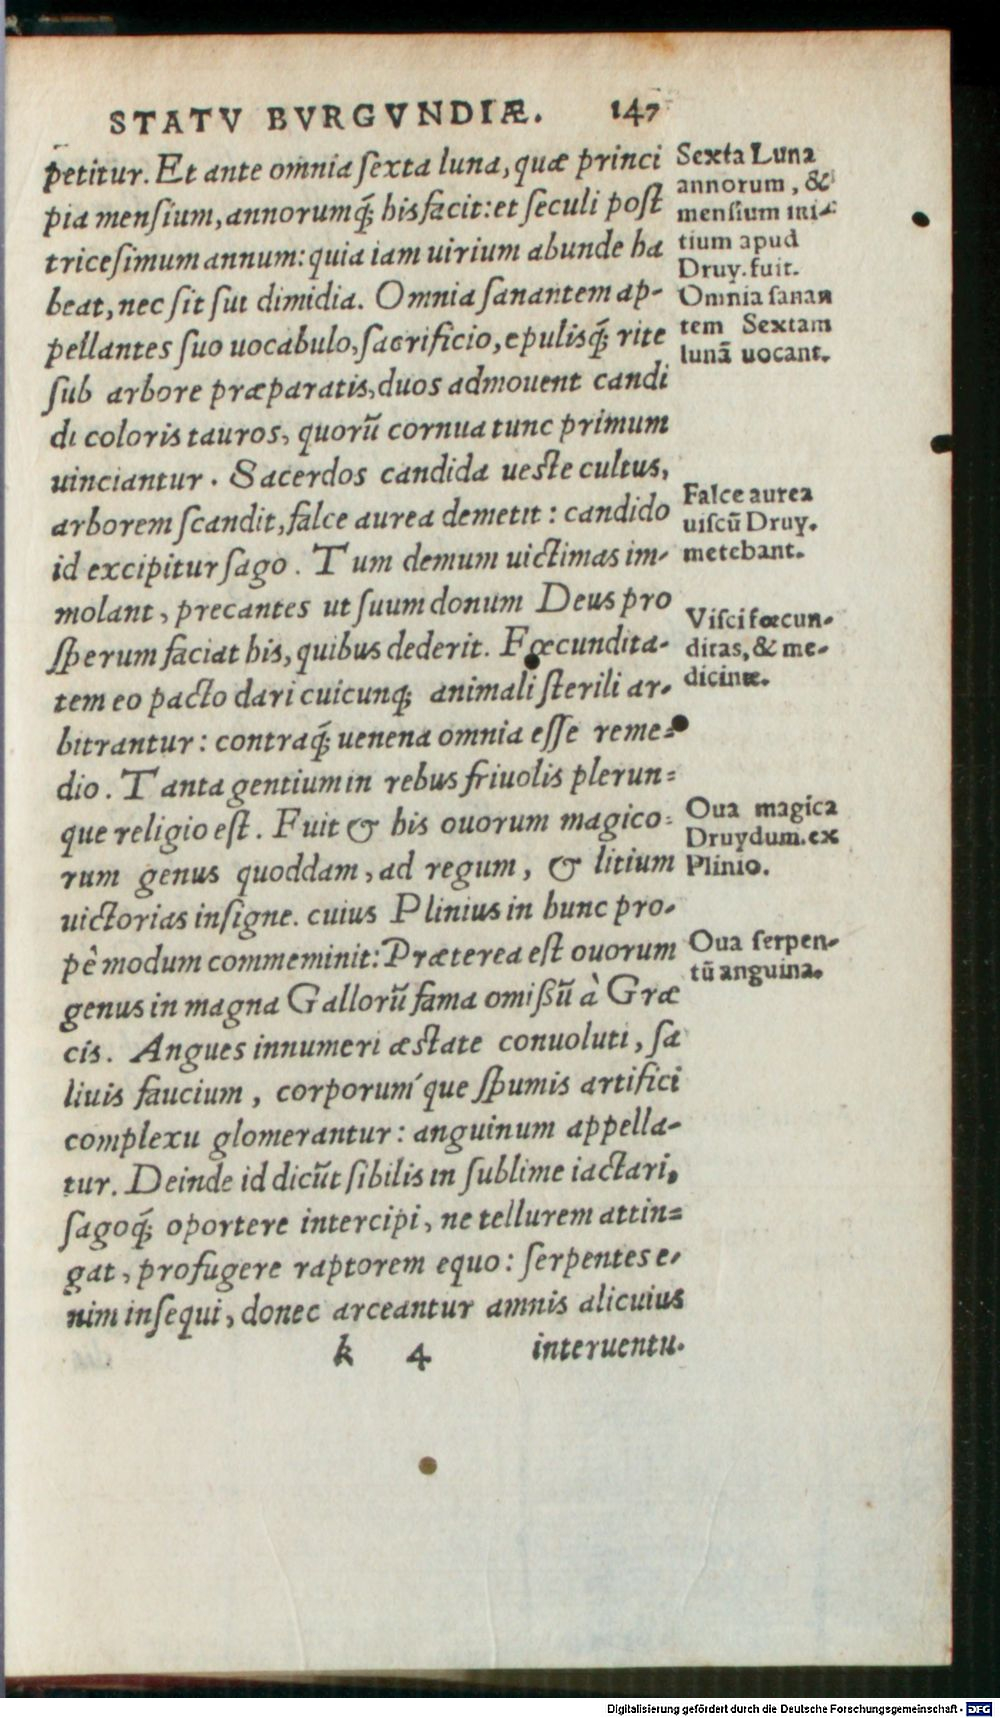 STATV BVRGVNDIÆ. 147
petitur. Et ante omnia ſexta luna, quæ princi
pia menſium, annorumq́; his facit: et ſeculi poſt
triceſimum annum: quia iam uirium abunde ha
beat, nec ſit ſui dimidia. Omnia ſanantem ap-
pellantes ſuo uocabulo, ſacrificio, epulisq́; rite
ſub arbore præparatis, duos admouent candi
di coloris tauros, quorũ cornua tunc primum
uinciantur. Sacerdos candida ueſte cultus,
arborem ſcandit, falce aurea demetit: candido
id excipitur ſago. Tum demum uictimas im-
molant, precantes ut ſuum donum Deus pro
ſperum faciat his, quibus dederit. Fœcundita-
tem eo pacto dari cuicunq; animali ſterili ar-
bitrantur: contraq́; uenena omnia eſſe reme-
dio. Tanta gentium in rebus friuolis plerun-
que religio eſt. Fuit & his ouorum magico-
rum genus quoddam, ad regum, & litium
uictorias inſigne. cuius Plinius in hunc pro-
pè modum commeminit: Præterea eſt ouorum
genus in magna Gallorũ fama omißũ à Græ
cis. Angues innumeri æſtate conuoluti, ſa
liuis faucium, corporum´que ſpumis artifici
complexu glomerantur: anguinum appella-
tur. Deinde id dicũt ſibilis in ſublime iactari,
ſagoq́; oportere intercipi, ne tellurem attin-
gat, profugere raptorem equo: ſerpentes e-
nim inſequi, donec arceantur amnis alicuius
k 4 interuentu.
Sexta Luna
annorum, &
menſium ini-
tium apud
Druy. fuit.
Omnia ſanan
tem Sextam
lunã uocant.
Falce aurea
uiſcũ Druy.
metebant.
Viſci fœcun-
ditas, & me-
dicinæ.
Oua magica
Druydum. ex
Plinio.
Oua ſerpen-
tũ anguina.
Digitalisierung gefördert durch die Deutsche Forschungsgemeinschaft - DFG